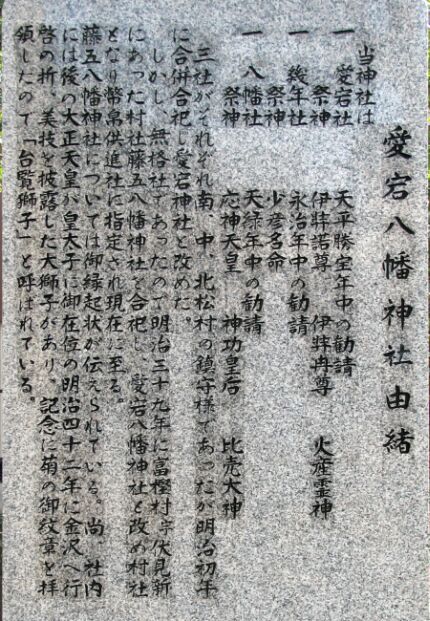 愛宕八幡神社由緒
当神社は
一 愛宕社 天平勝宝年中の勧請
祭神 伊弉諾尊 伊弉冉尊 火産霊神
一 幾年社 永治年中の勧請
祭神 少彦名命
一 八幡社 天禄年中の勧請
祭神 応神天皇 神功皇后 比売大神
三社がそれぞれ南、中、北松村の鎮守様であったが明治初年
に合併合祀し愛宕神社と改めた。
しかし、無格社であったので明治三十九年に富樫村字伏見新
にあった村社藤五八幡神社を合祀し、愛宕八幡神社と改め村社
となり幣帛供進社に指定され現在に至る。
藤五八幡神社については御縁起状が伝えられている。尚、社内
には後の大正天皇が皇太子に御在位の明治四十二年に金沢へ行
啓の折、美技を披露した大獅子があり。記念に菊の御紋章を拝
領したので「台覧獅子」と呼ばれている。